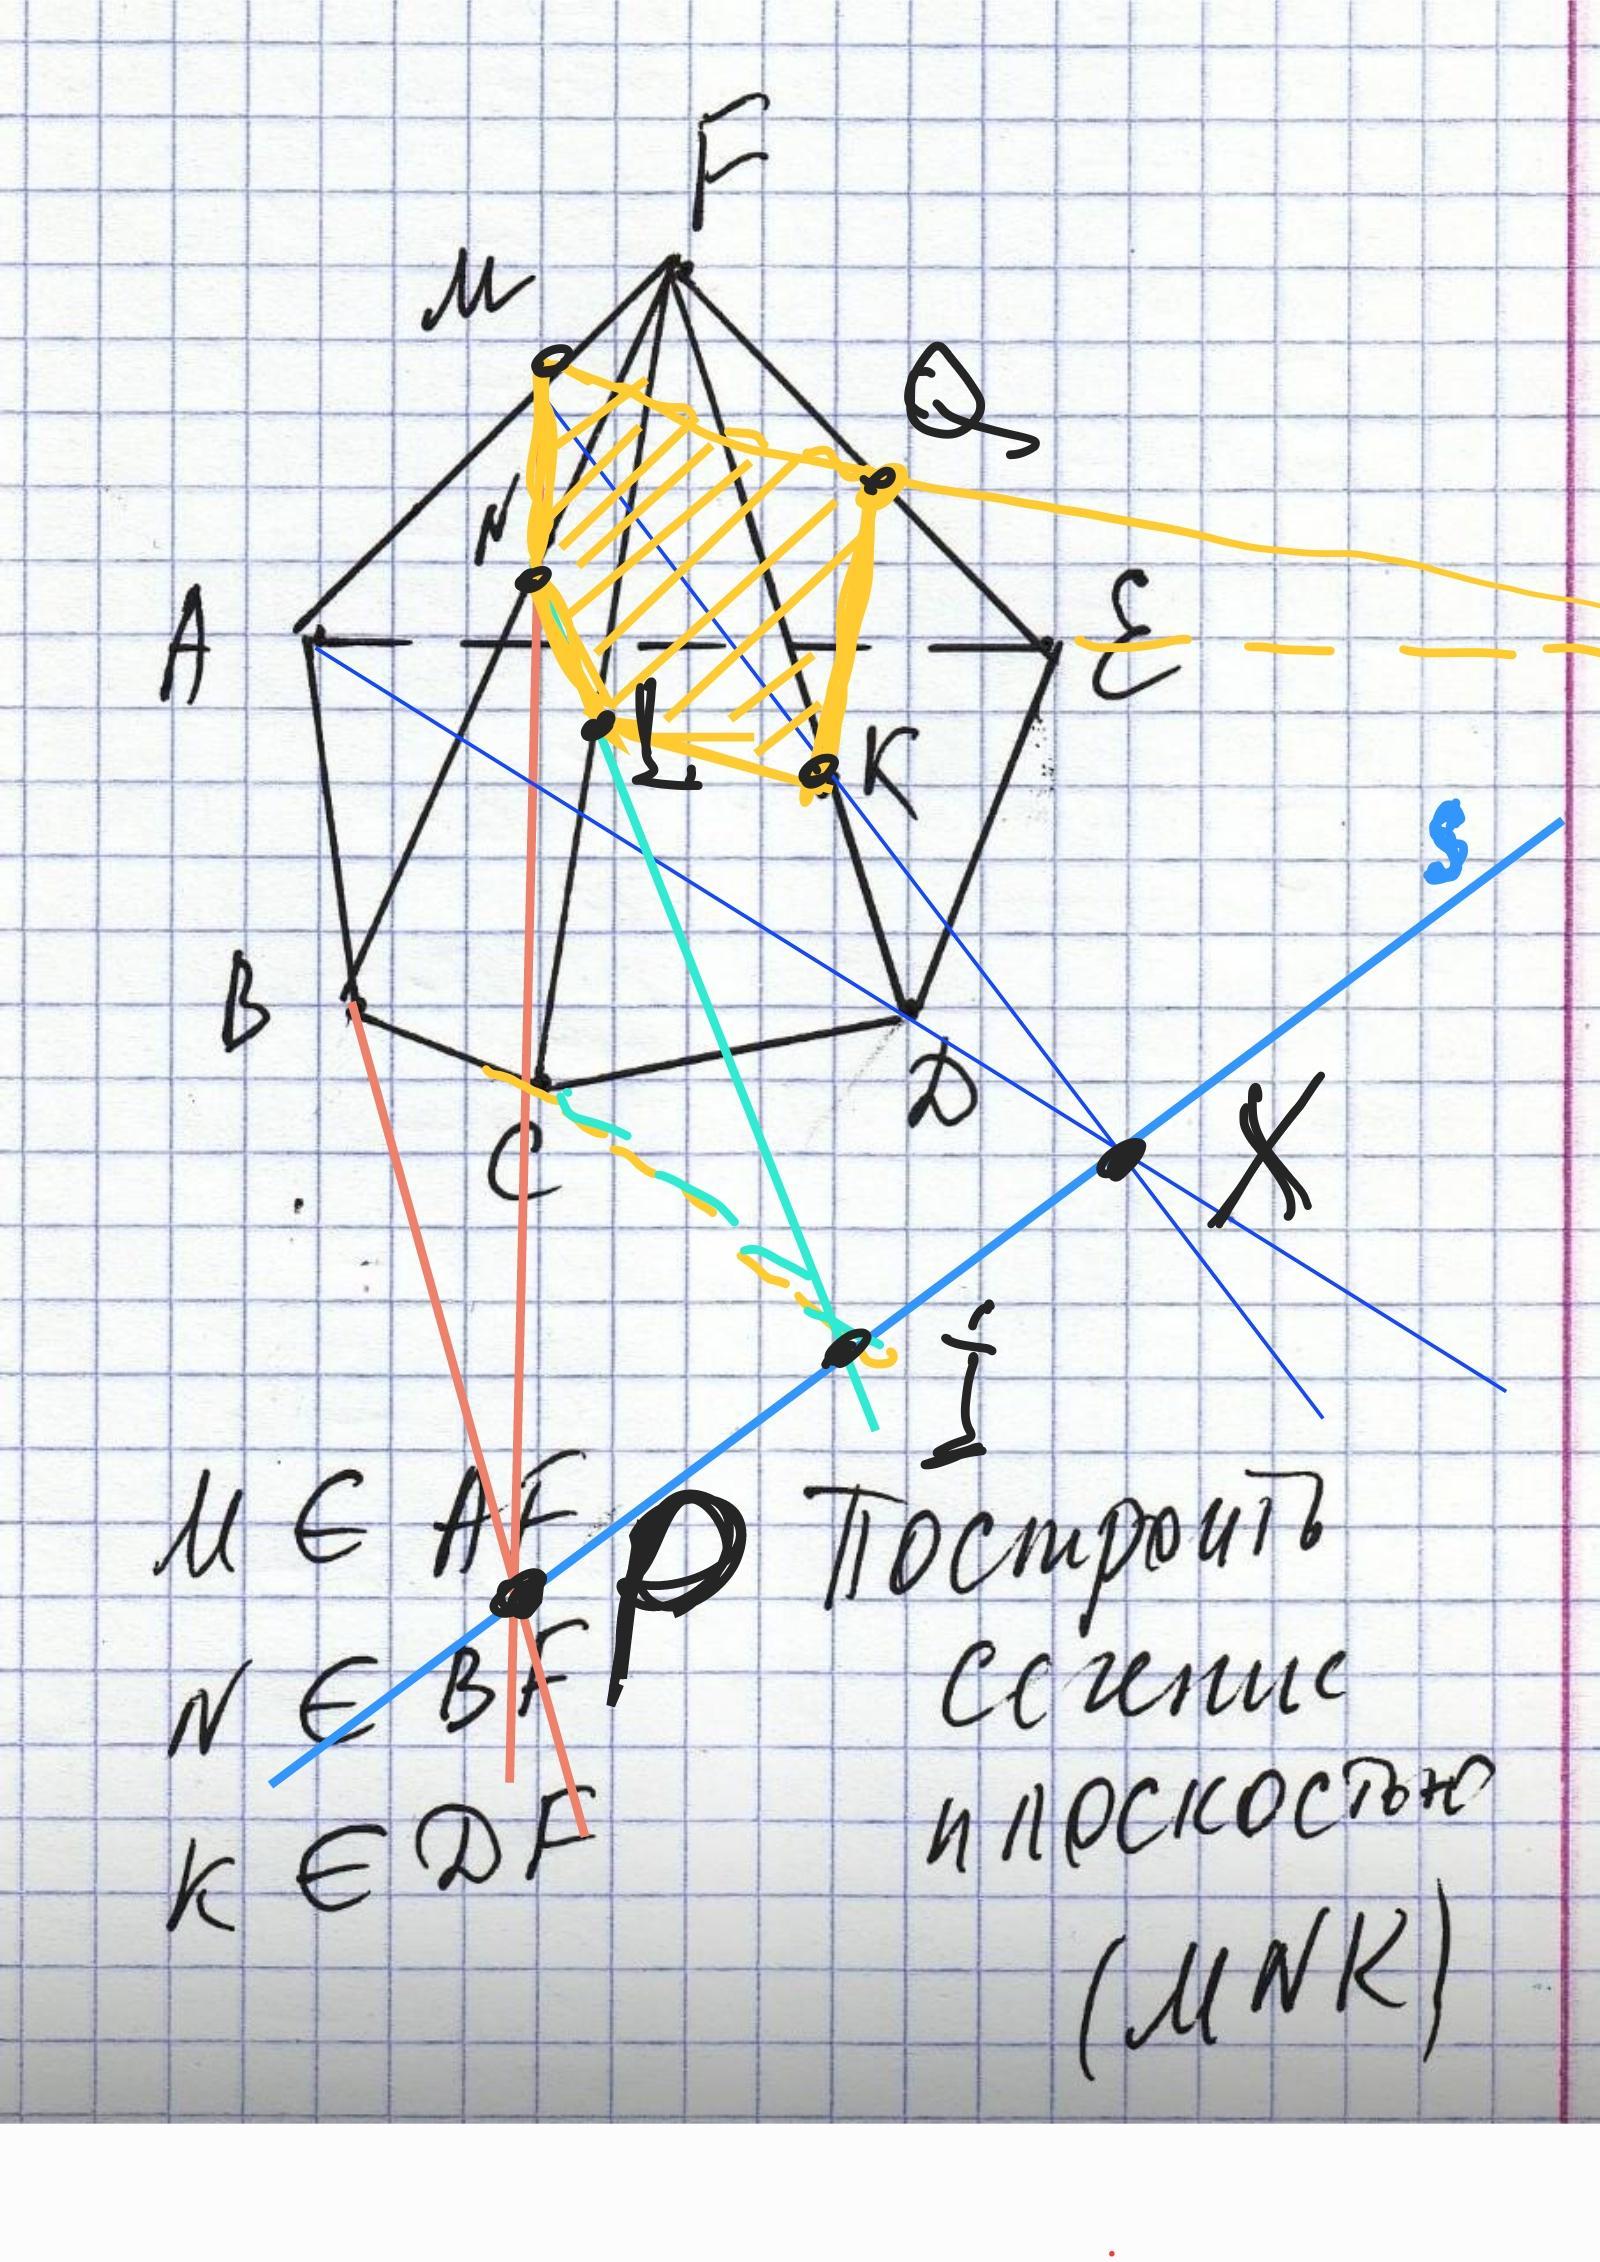 F
M
Q
N
A
E
L
K
S
B
D
X
C
I
M ∈ AF
P
Построить
N ∈ BF
сечение
K ∈ DF
плоскостью
(MNK)